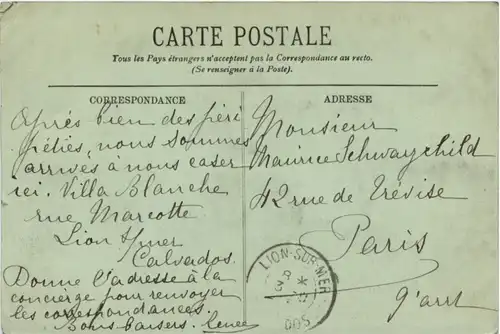 CARTE POSTALE
Tous les Pays étrangers n'acceptent pas la Correspondance au recto.
(Se renseigner à la Poste).
CORRESPONDANCE
Après bien des péri
péties, nous sommes
arrivés à nous caser
ici. Villa Blanche
rue Marcotte
Lion s/mer
Calvados.
Donne l'adresse à la
concierge pour renvoyer
les correspondances.
Bons baisers.
ADRESSE
Monsieur
Maurice Schwaychild
42 rue de Trévise
Paris
9e arrt
LION-SUR-MER